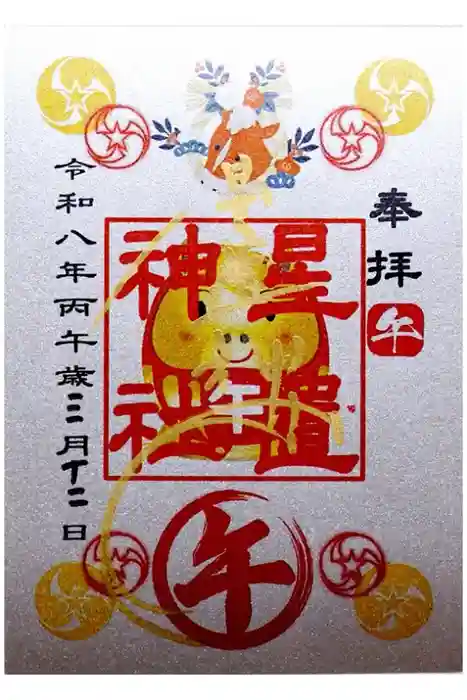 奉拝
午
星置
神社
午
午
令和八年丙午歳三月十二日